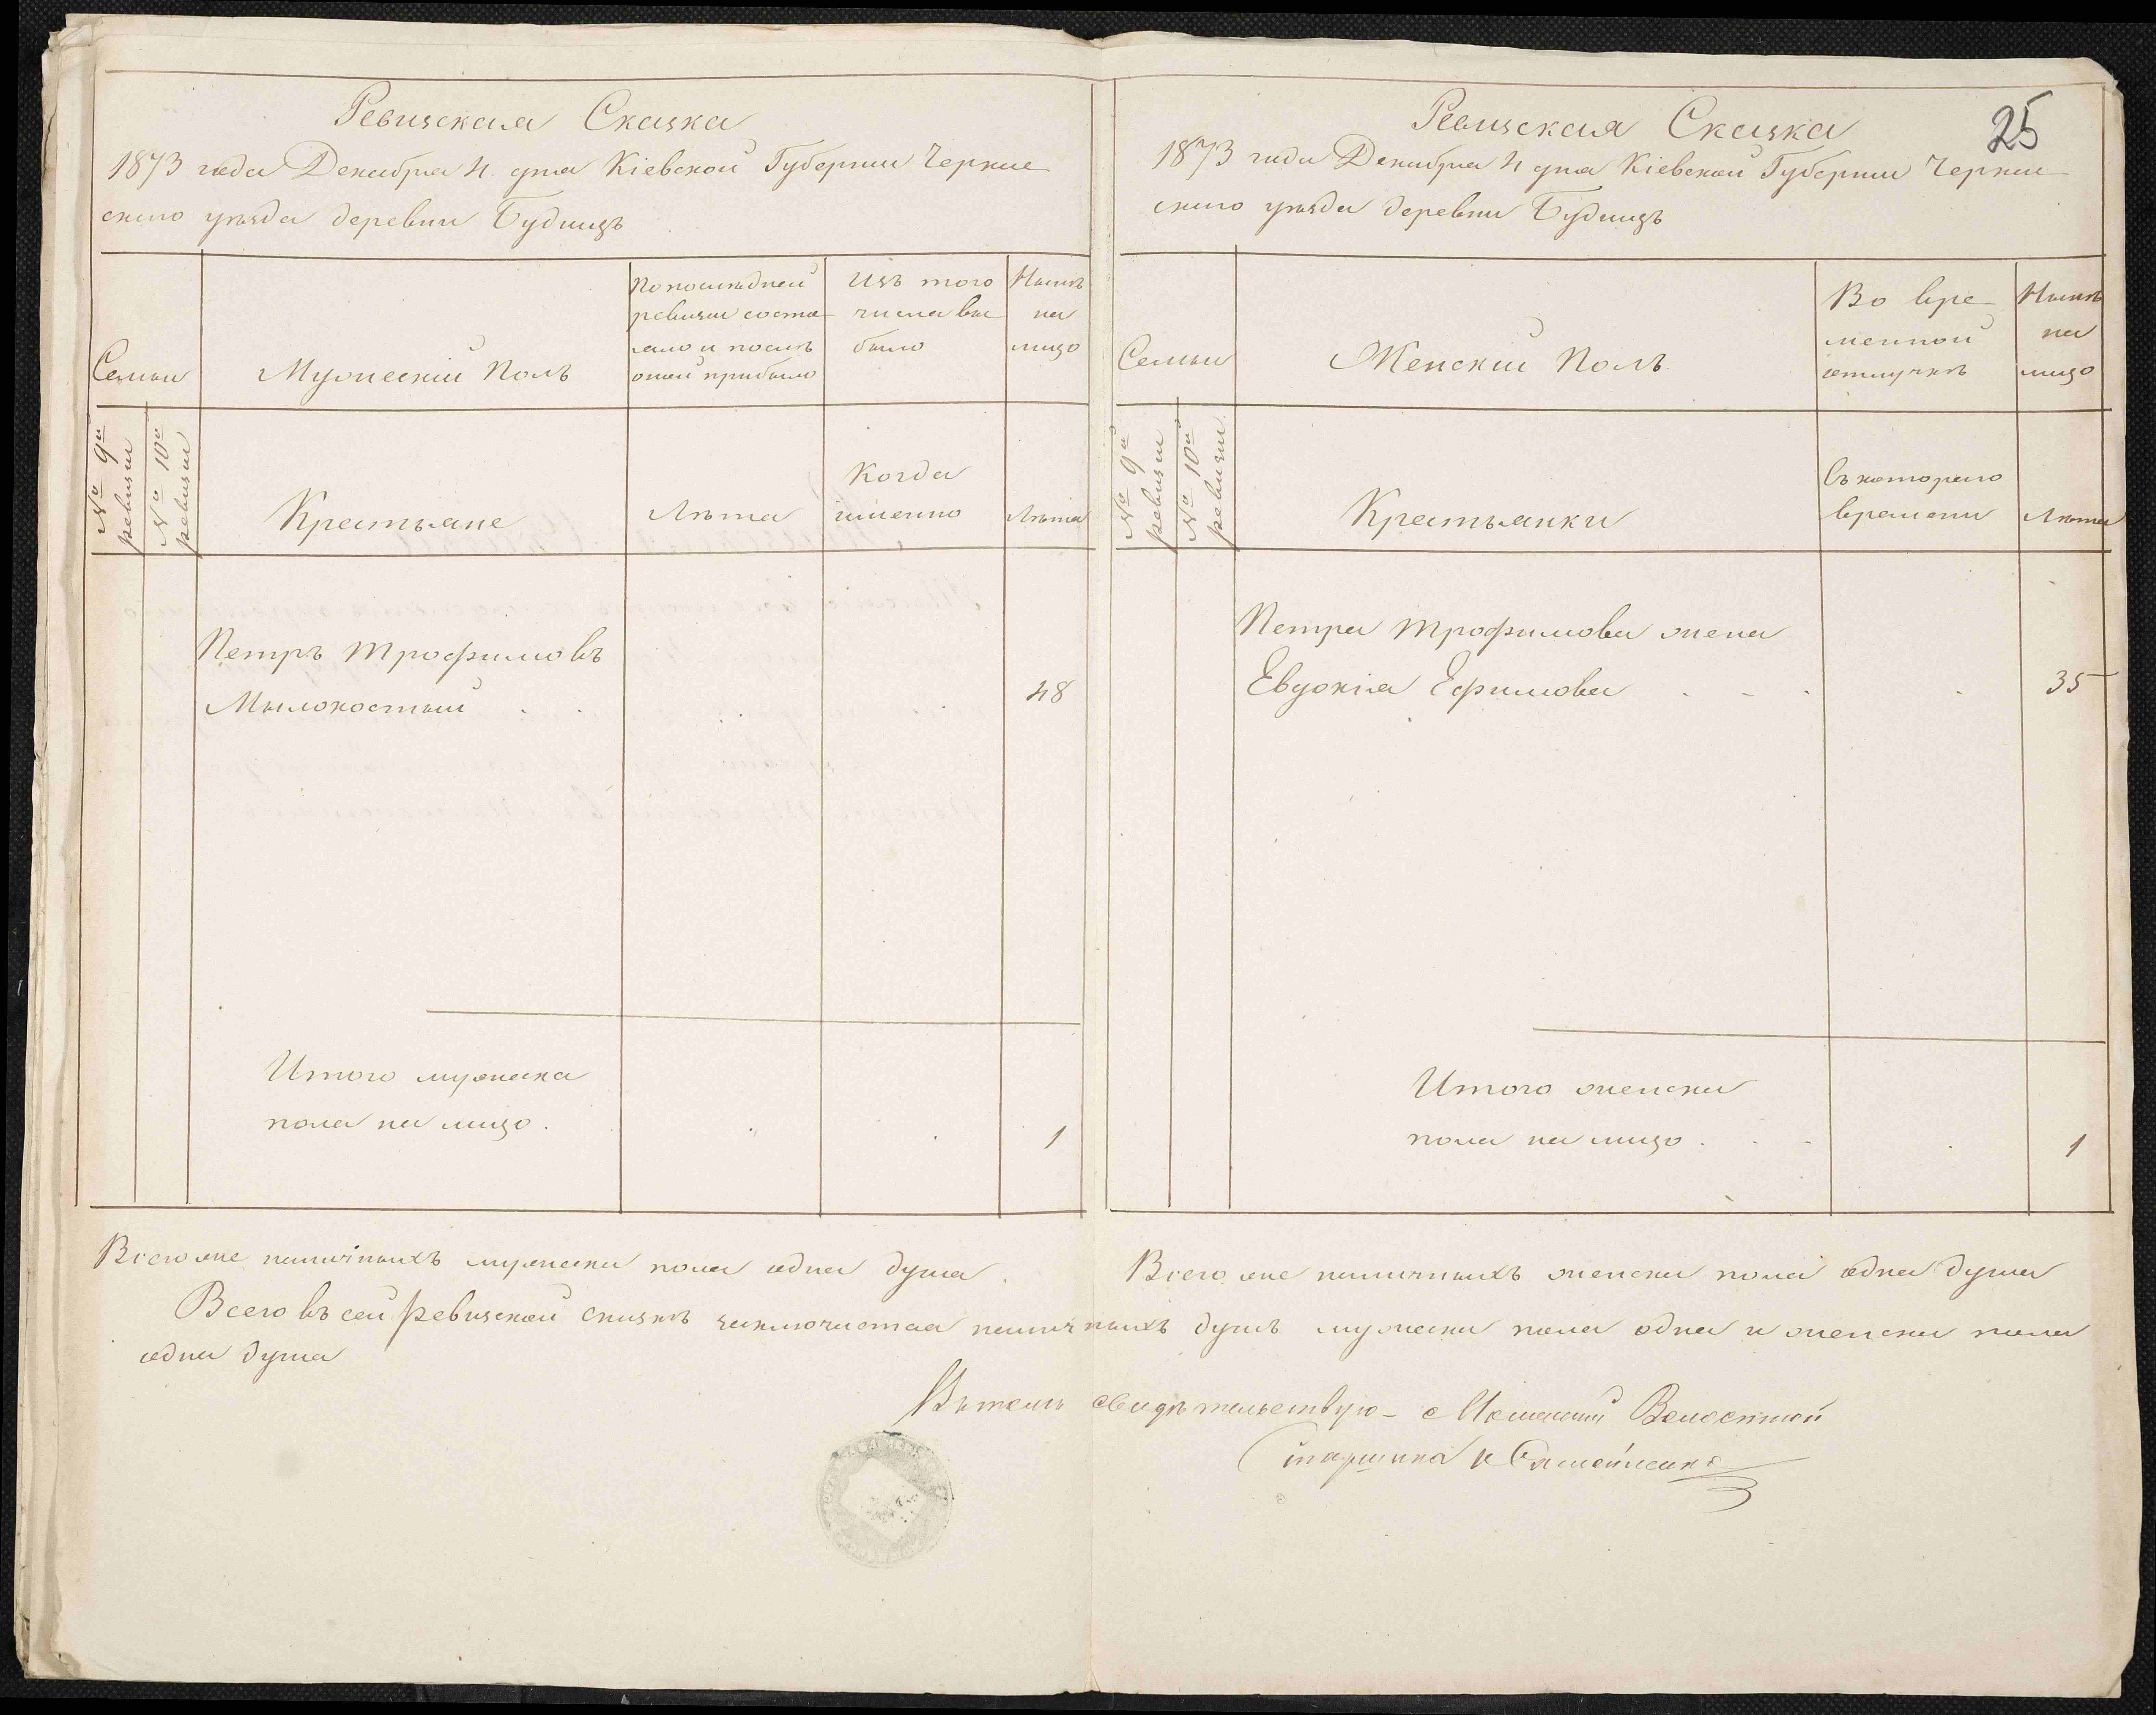 Ревизская Сказка
1873 года Декабря 4 дня Кіевской Губерніи Черка
скаго уѣзда деревни Будищъ
Семьи
Мужескій Полъ
По послѣдней
ревизіи состо
яло и послѣ
оной прибыло
Изъ того
числа вы
было
Нынѣ
на
лицо
№ 9й
ревизіи
№ 10й
ревизіи
Крестьяне
Лѣта
Когда
именно
Лѣта
Петръ Трофимовъ
Мылокостый 48
Итого мужеска
пола на лицо 1
Всего же наличныхъ мужеска пола одна душа
25
Ревизская Сказка
1873 года Декабря 4 дня Кіевской Губерніи Черка
скаго уѣзда деревни Будищъ
Семьи
Женскій Полъ
Во вре
менной
отлучкѣ
Нынѣ
на
лицо
№ 9й
ревизіи
№ 10й
ревизіи
Крестьянки
Съ котораго
времени
Лѣта
Петра Трофимова жена
Евдокія Ефимова 35
Итого женска
пола на лицо 1
Всего же наличныхъ женска пола одна душа
Всего въ сей ревизской сказкѣ заключается наличныхъ душъ мужеска пола одна и женска пола
одна душа
Въ томъ свидѣтельствую Волостной
Старшина